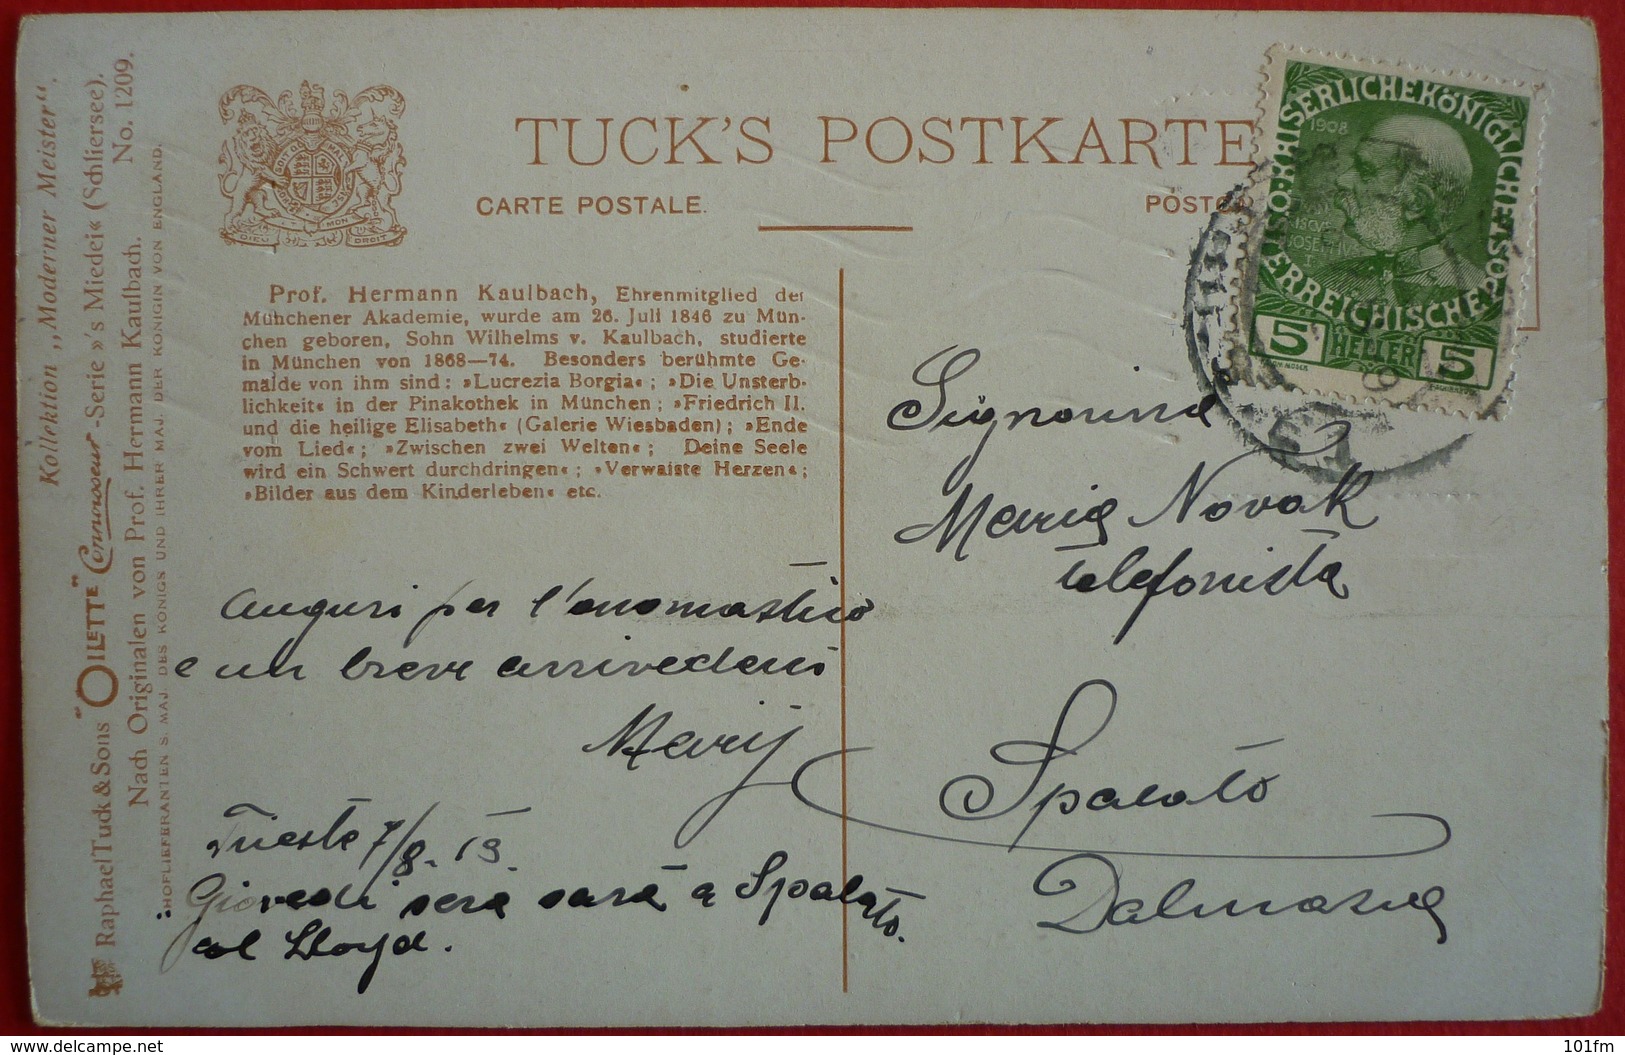 Kollektion „Moderner Meister“.
Raphael Tuck & Sons "OILETTE" Connoisseur-Serie »'s Miedei« (Schliersee).
Nach Originalen von Prof. Hermann Kaulbach. No. 1209.
HOFLIEFERANTEN S. MAJ. DES KÖNIGS UND IHRER MAJ. DER KÖNIGIN VON ENGLAND.
DIEU ET MON DROIT
TUCK'S POSTKARTE
CARTE POSTALE.
Prof. Hermann Kaulbach, Ehrenmitglied der
Münchener Akademie, wurde am 26. Juli 1846 zu Mün-
chen geboren, Sohn Wilhelms v. Kaulbach, studierte
in München von 1868—74. Besonders berühmte Ge-
mälde von ihm sind: »Lucrezia Borgia«; »Die Unsterb-
lichkeit« in der Pinakothek in München; »Friedrich II.
und die heilige Elisabeth« (Galerie Wiesbaden); »Ende
vom Lied«; »Zwischen zwei Welten«; Deine Seele
wird ein Schwert durchdringen«; »Verwaiste Herzen«;
»Bilder aus dem Kinderleben« etc.
auguri per l'onomastico
e un breve arrivederci
Marij
Trieste 7/8. 13.
Giovedi sera sarà a Spalato
col Lloyd.
KAISERLICHE KÖNIGLICHE ÖSTERREICHISCHE POST
1908
5 HELLER 5
Signorina
Maria Novak
telefonista
Spalato
Dalmazia
delcampe.net
101fm